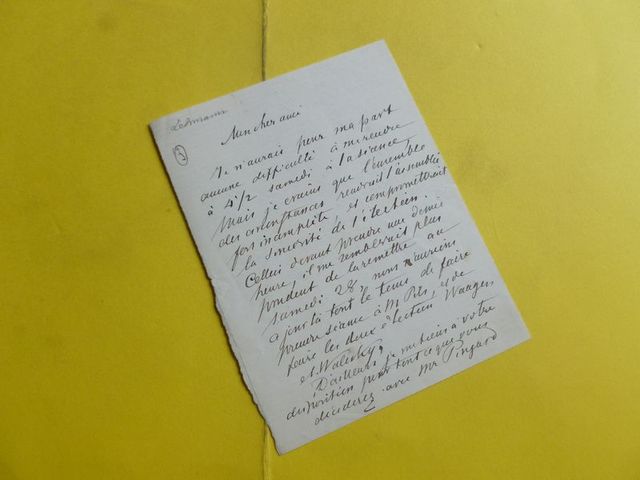 Lehmann
Mon cher ami
Je n'aurais pour ma part
aucune difficulté à me rendre
à 4 1/2 samedi à la séance,
Mais je crains que l'ensemble
des circonstances rendrait l'assemblée
fort incomplète, et compromettrait
la sincérité de l'élection.
Celle ci devant prendre une demie
heure, il me semblerait plus
prudent de la remettre au
samedi 28, nous n'aurions
à jour là tout le tems de faire
prendre séance à M Pils, et de
faire les deux élections Waagen
et Walesky.
D'ailleurs je me tiens à votre
disposition pour tout ce que vous
déciderez avec Mr Pingard